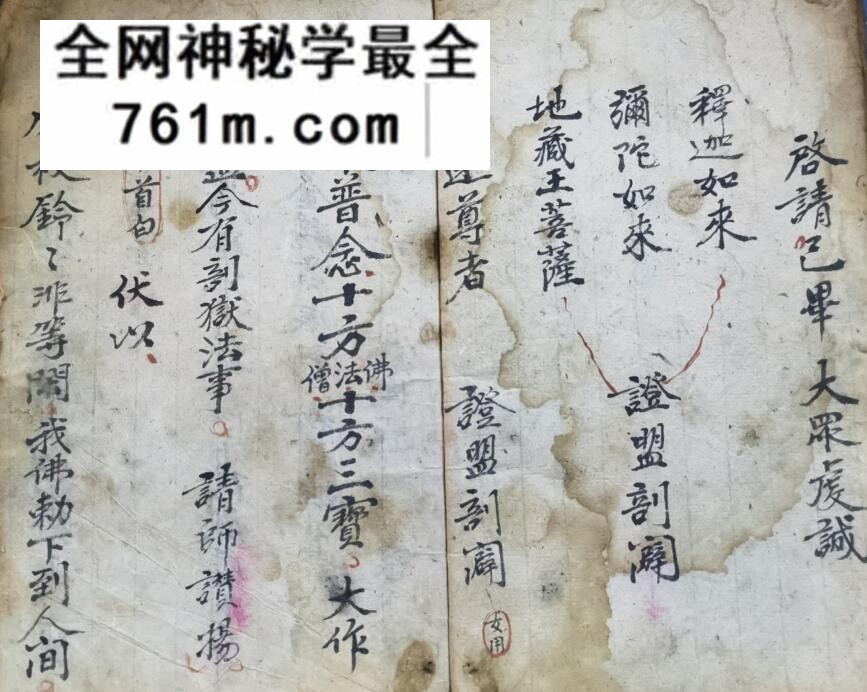 全网神秘学最全
761m.com
啓請已畢 大眾虔誠
釋迦如來
彌陀如來 證盟剖闢
地藏王菩薩
尊者 證盟剖闢 女用
普念十方佛法僧十方三寶。大作
今有剖獄法事。 請師讚揚
首白 伏以
鈴〻非等閑 我佛勅下到人间